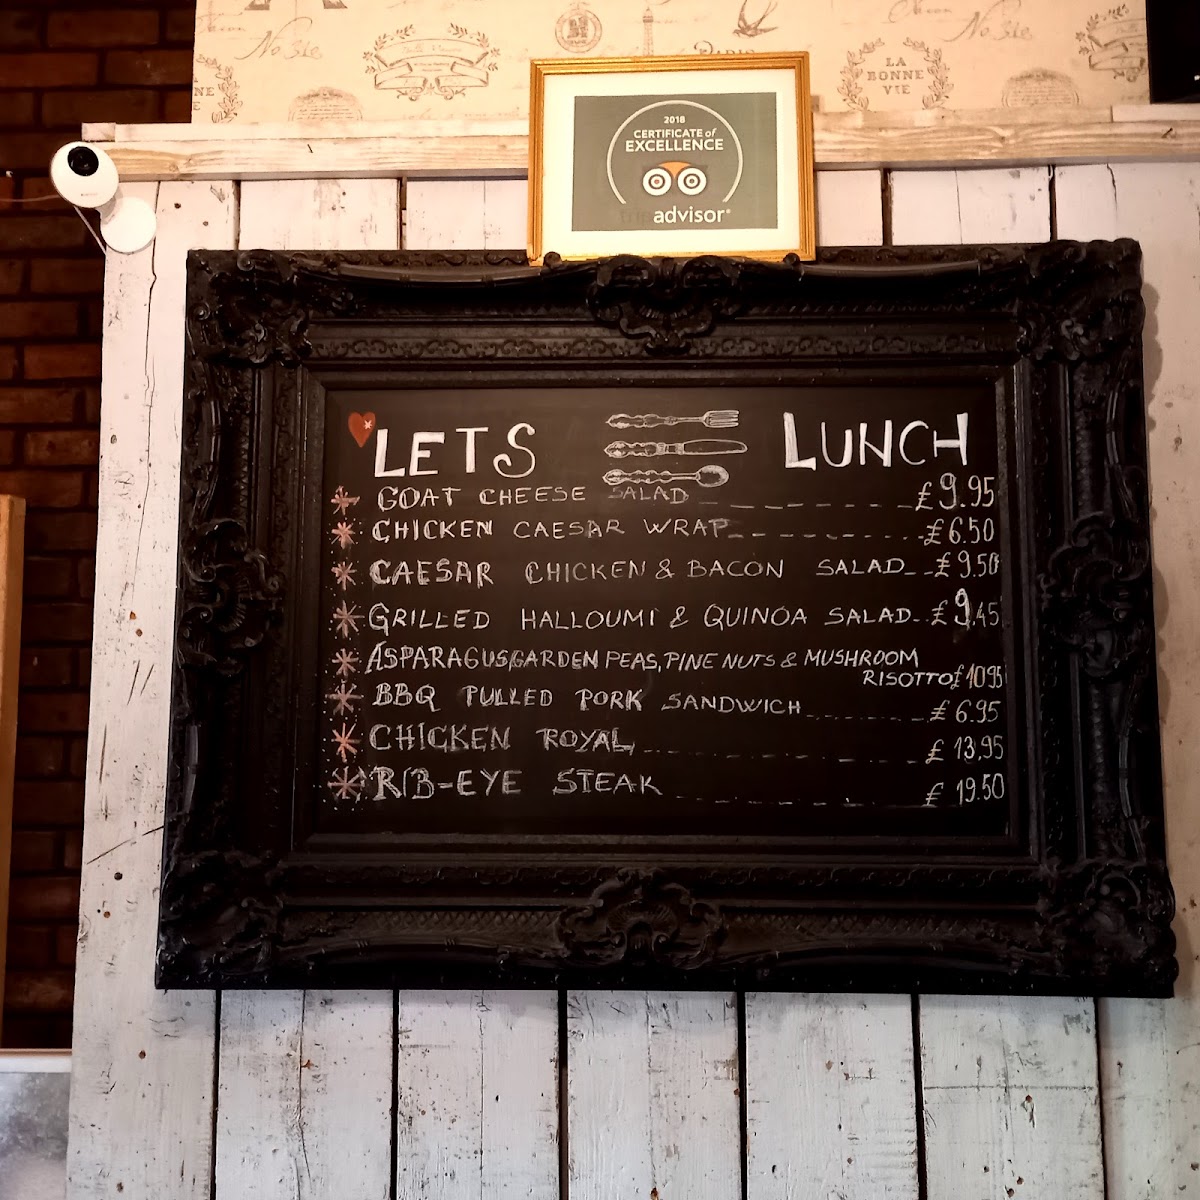 No 31c
PARIS
LA
BONNE
VIE
NE
IE
2018
CERTIFICATE of
EXCELLENCE
tripadvisor®
LETS LUNCH
GOAT CHEESE SALAD £9.95
CHICKEN CAESAR WRAP £6.50
CAESAR CHICKEN & BACON SALAD £9.50
GRILLED HALLOUMI & QUINOA SALAD £9.45
ASPARAGUS, GARDEN PEAS, PINE NUTS & MUSHROOM
RISOTTO £10.95
BBQ PULLED PORK SANDWICH £6.95
CHICKEN ROYAL £13.95
RIB-EYE STEAK £19.50